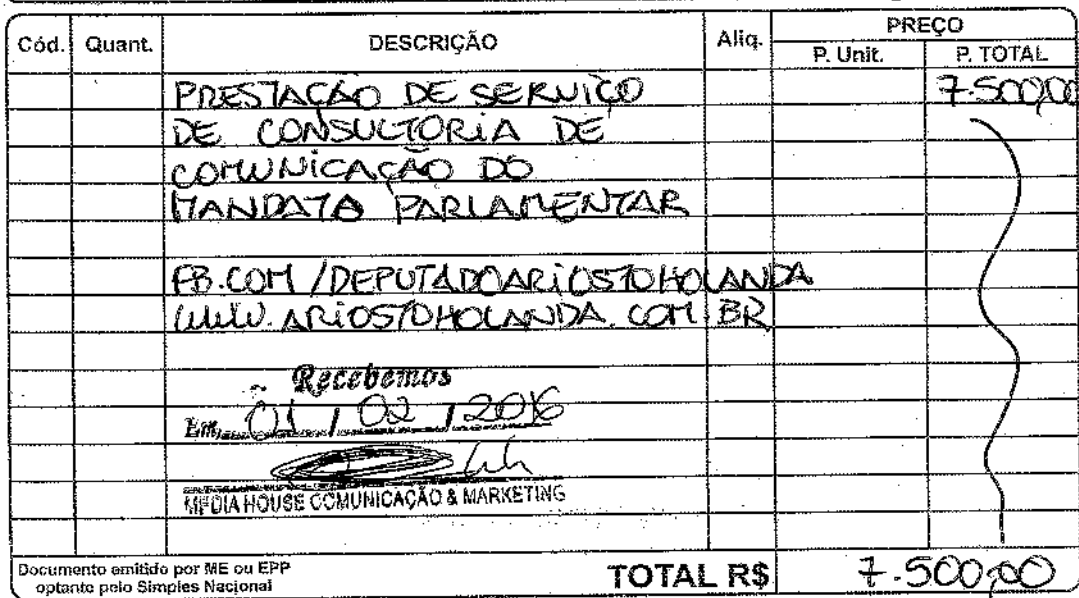 Cód. Quant. DESCRIÇÃO Aliq. PREÇO
P. Unit. P. TOTAL
PRESTAÇÃO DE SERVIÇO 7.500,00
DE CONSULTORIA DE
COMUNICAÇÃO DO
MANDATO PARLAMENTAR
FB.COM/DEPUTADOARIOSTOHOLANDA
WWW.ARIOSTOHOLANDA.COM.BR
Recebemos
Em, 01 / 02 / 2016
MEDIA HOUSE COMUNICAÇÃO & MARKETING
Documento emitido por ME ou EPP
optante pelo Simples Nacional
TOTAL R$ 7.500,00